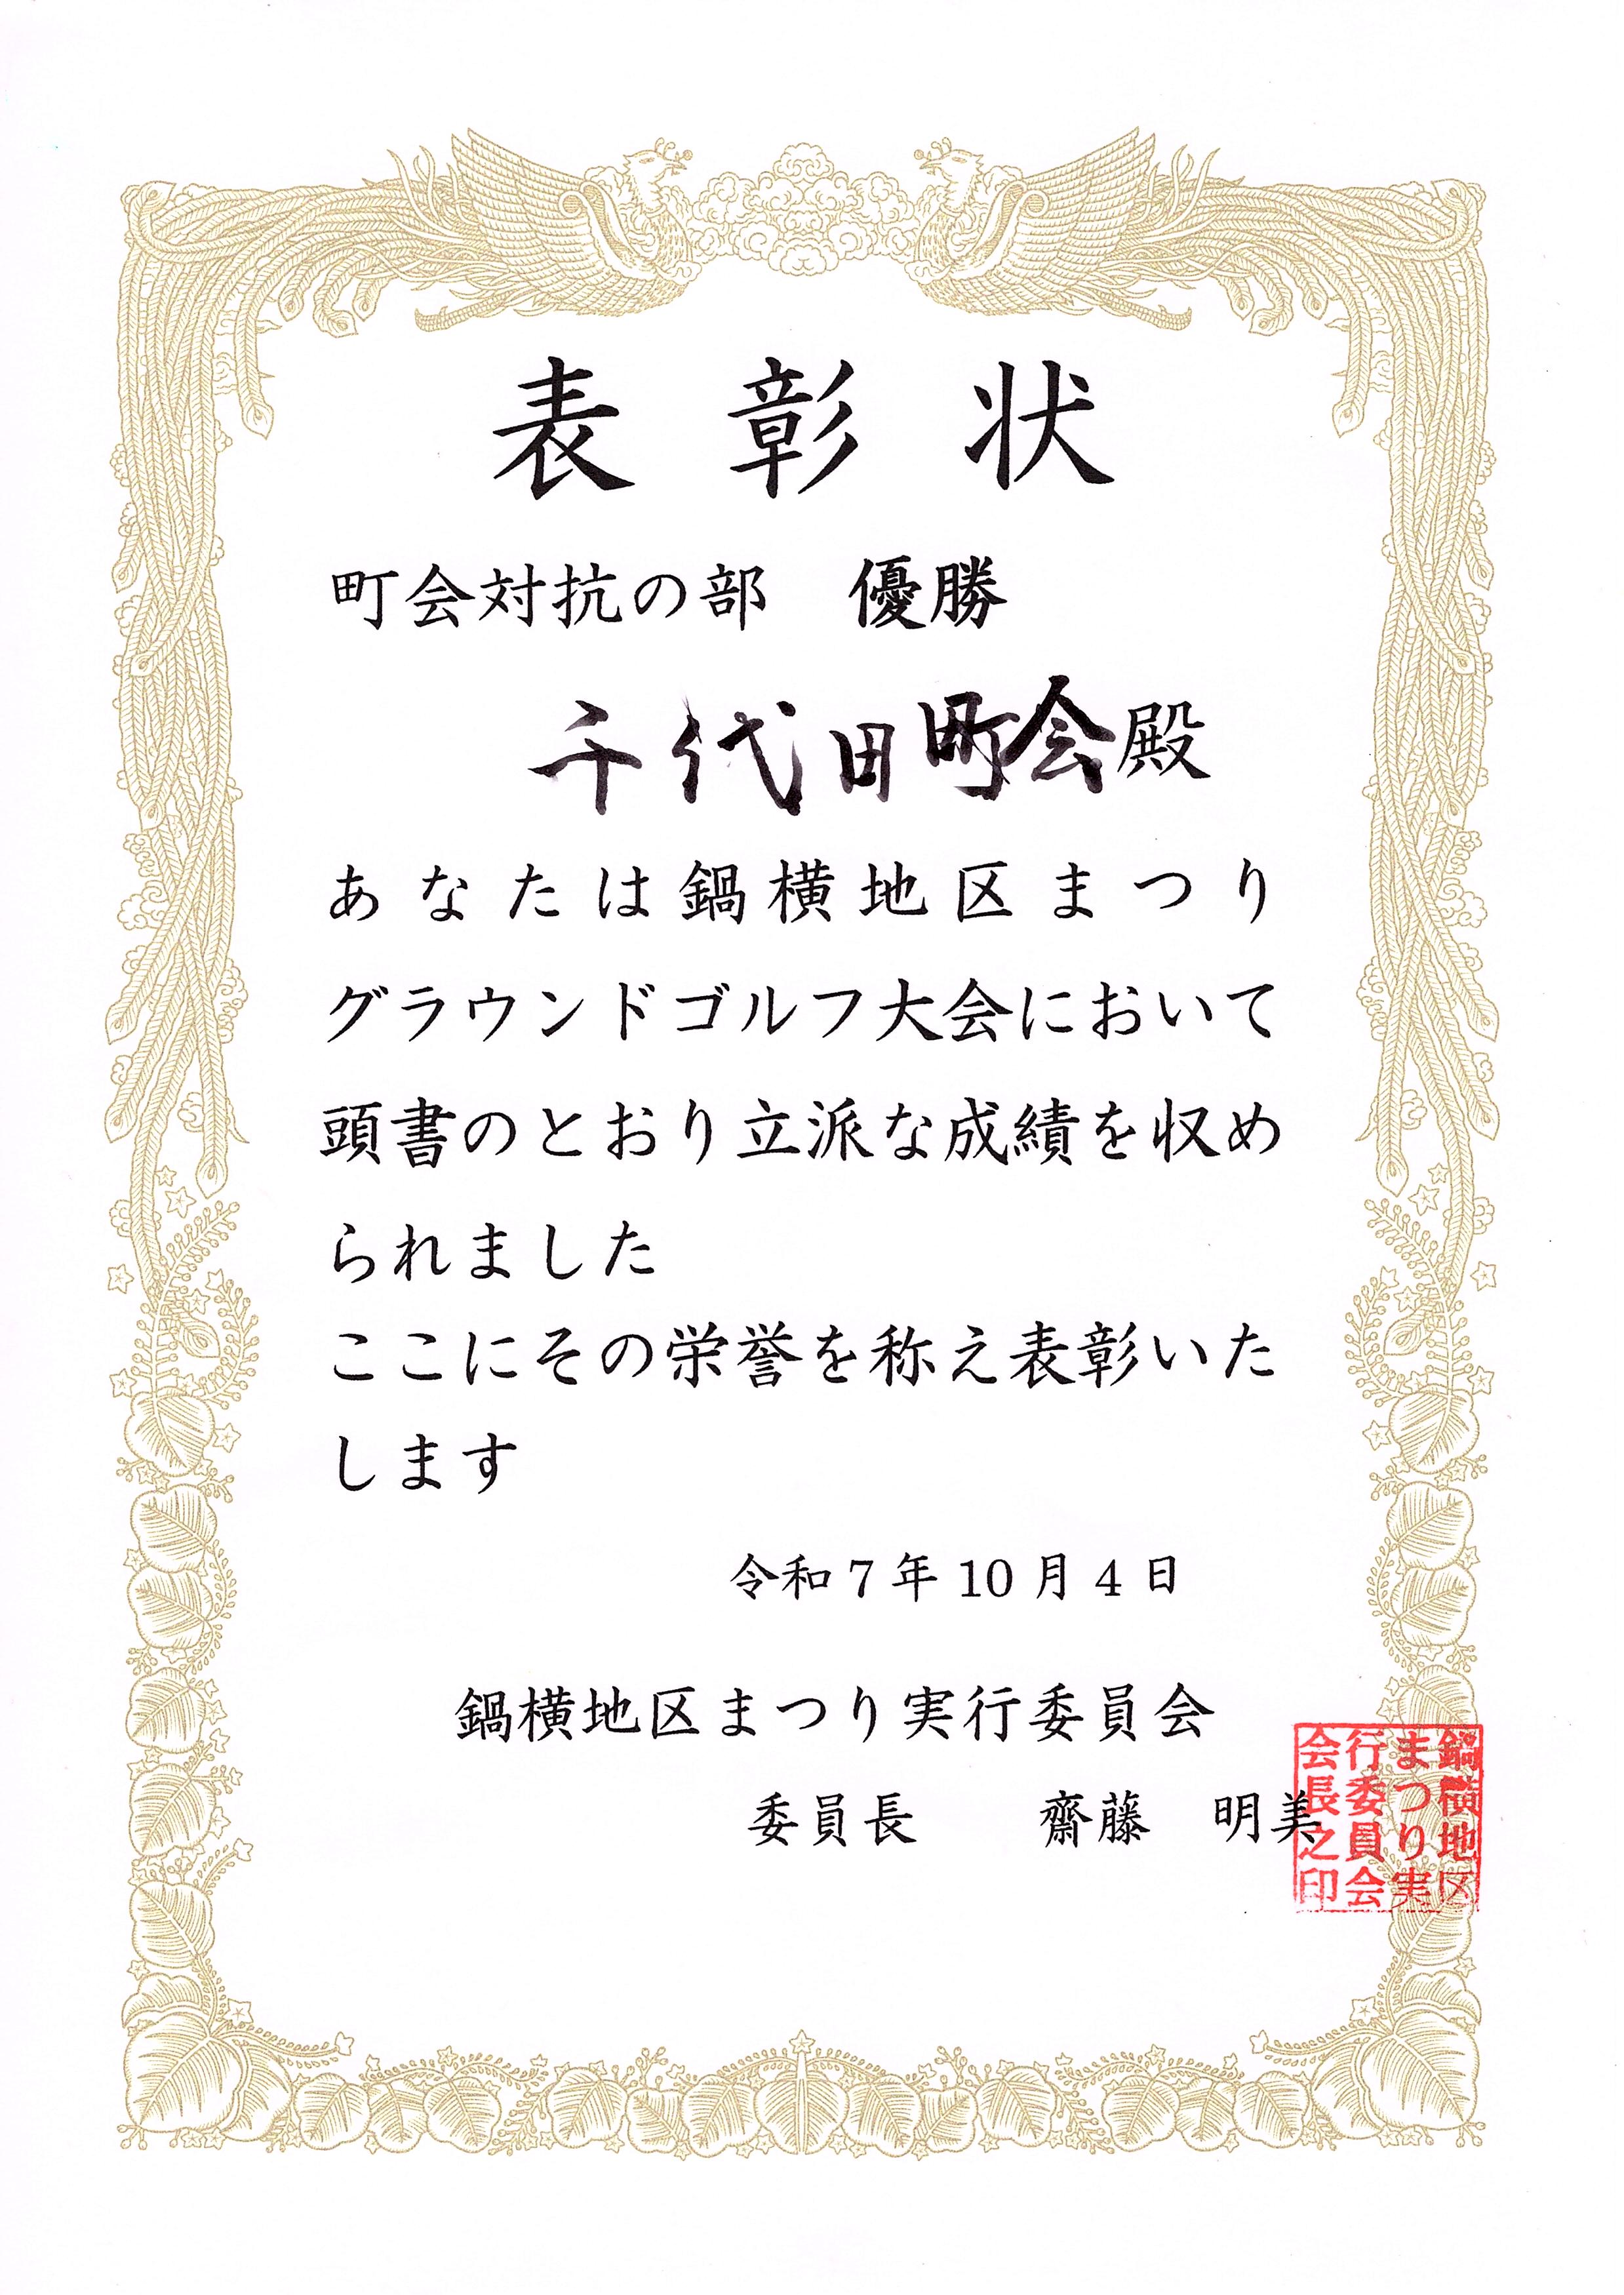 表彰状
町会対抗の部　優勝
千代田町会殿
あなたは鍋横地区まつり
グラウンドゴルフ大会において
頭書のとおり立派な成績を収め
られました
ここにその栄誉を称え表彰いた
します
令和7年10月4日
鍋横地区まつり実行委員会
委員長　齋藤　明美
鍋横地区
まつり実
行委員会
会長之印